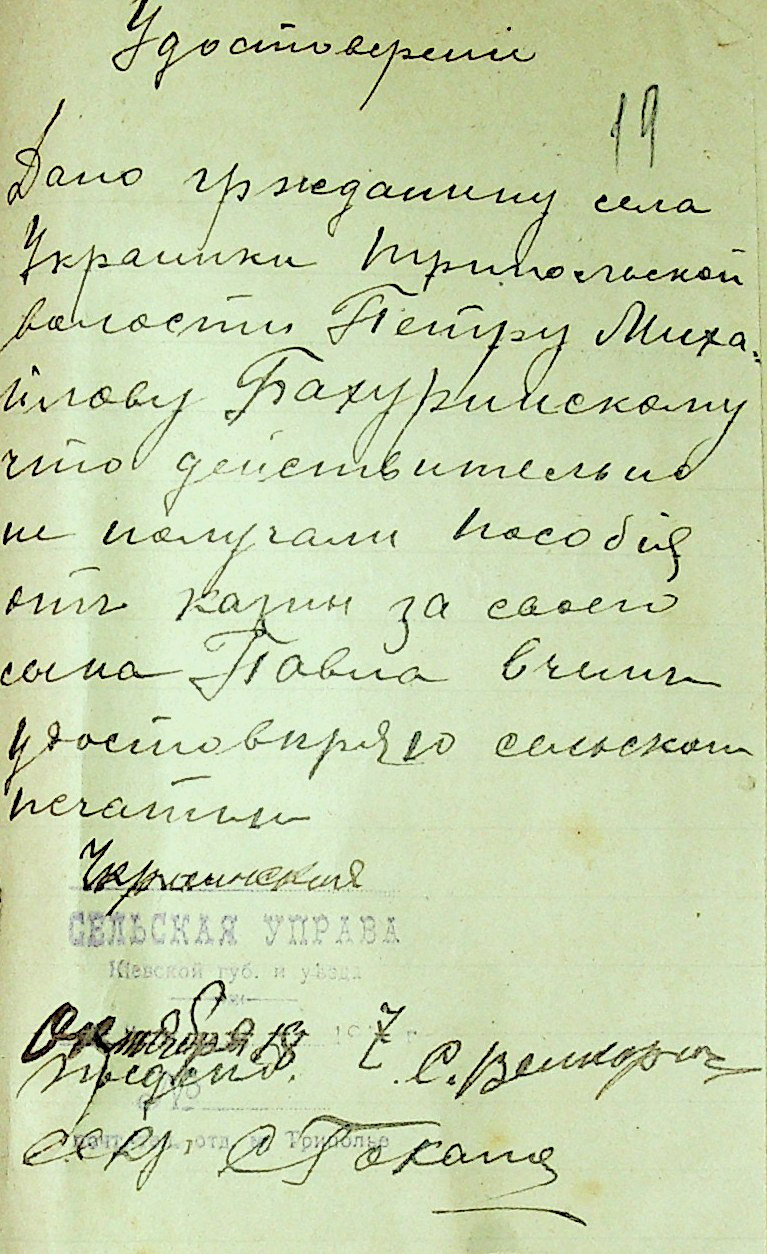 Удостоверенiе
19
Дано гржданину села
Украинки Трипольской
волости Петру Миха-
йлову Бахуринскому
что действительно
не получали пособiя
отъ казны за своего
сына Павла в чемъ
удостовпряю сельской
печатью
Украинская
СЕЛЬСКАЯ УПРАВА
Кiевской губ. и уѣзда
Октября 18 191 7 г
С.
почт. тел. отд. м. Триполье
секр,